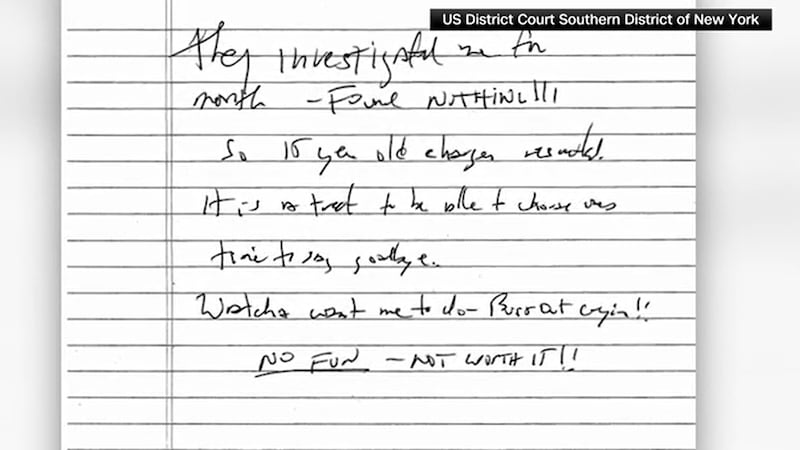 US District Court Southern District of New York
They investigated me for
month - Found NOTHING!!!
So 15 year old charges resulted.
It is a treat to be able to choose ones
time to say goodbye.
Watcha want me to do - Burst out cryin!!
NO FUN - NOT WORTH IT!!